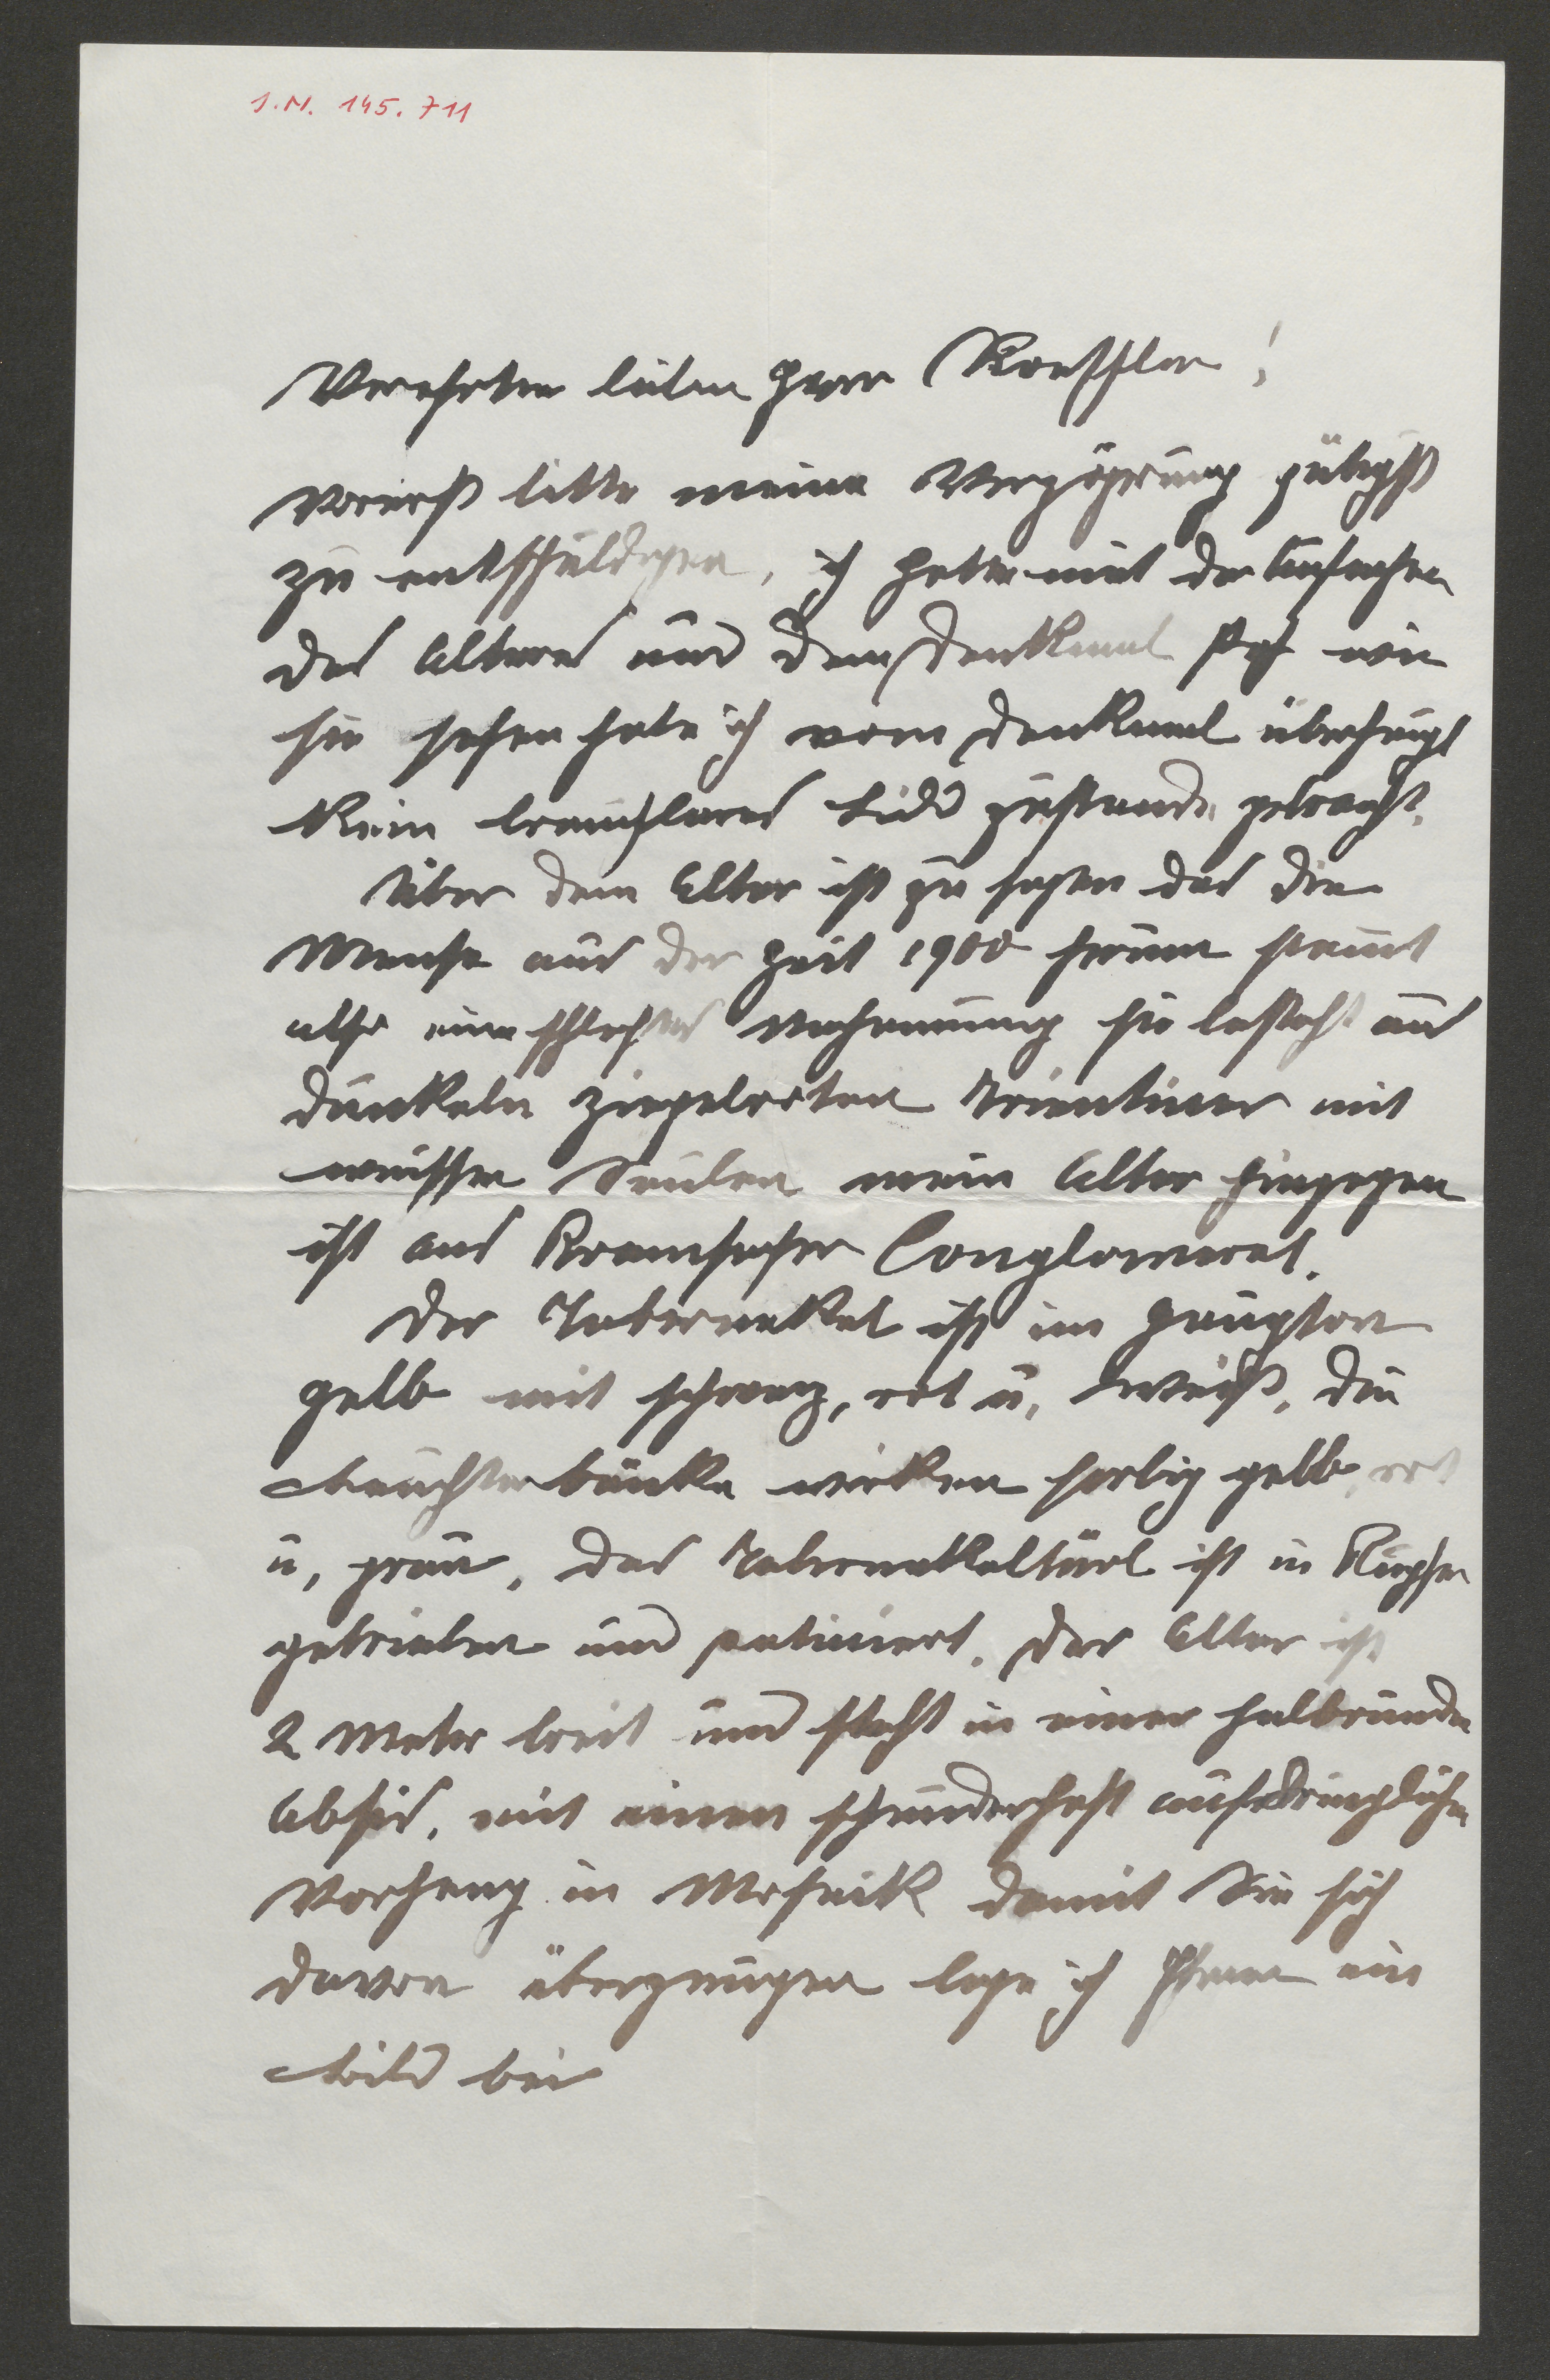 I.N. 145.711
Verehrter lieber Herr Roessler!
Vorerst bitte meine Verzögerung gütigst
zu entschuldigen, ich hatte mit der Aufnahme
des Altares und dem Denkmal Pech wie
sie sehen habe ich vom Denkmal überhaupt
kein brauchbares Bild zustande gebracht.
Über dem Altar ist zu sagen das die
Mensa aus der Zeit 1900 herum stammt
also eine schlechte sie besteht aus
dunkeln ziegelroten Trientiner mit
weissen Säulen mein Altar hingegen
ist aus Kramsacher Conglomerat.
Der Tabernakel ist im Hauptton
gelb mit schwarz, rot u. weiß. Die
Leuchterbänke wirken farbig gelb, rot
u, grau. Das Tabernakeltürl ist in Kupfer
getrieben und patiniert. Der Altar ist
2 Meter breit und steht in einer halbrunden
Absis, mit einen schauderhaft aufdringlichen
Vorhang in Mosaik damit Sie sich
davon überzeugen lege ich Ihnen ein
Bild bei